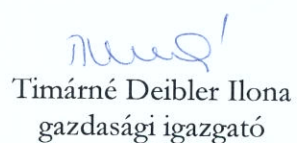 Timárné Deibler Ilona
gazdasági igazgató